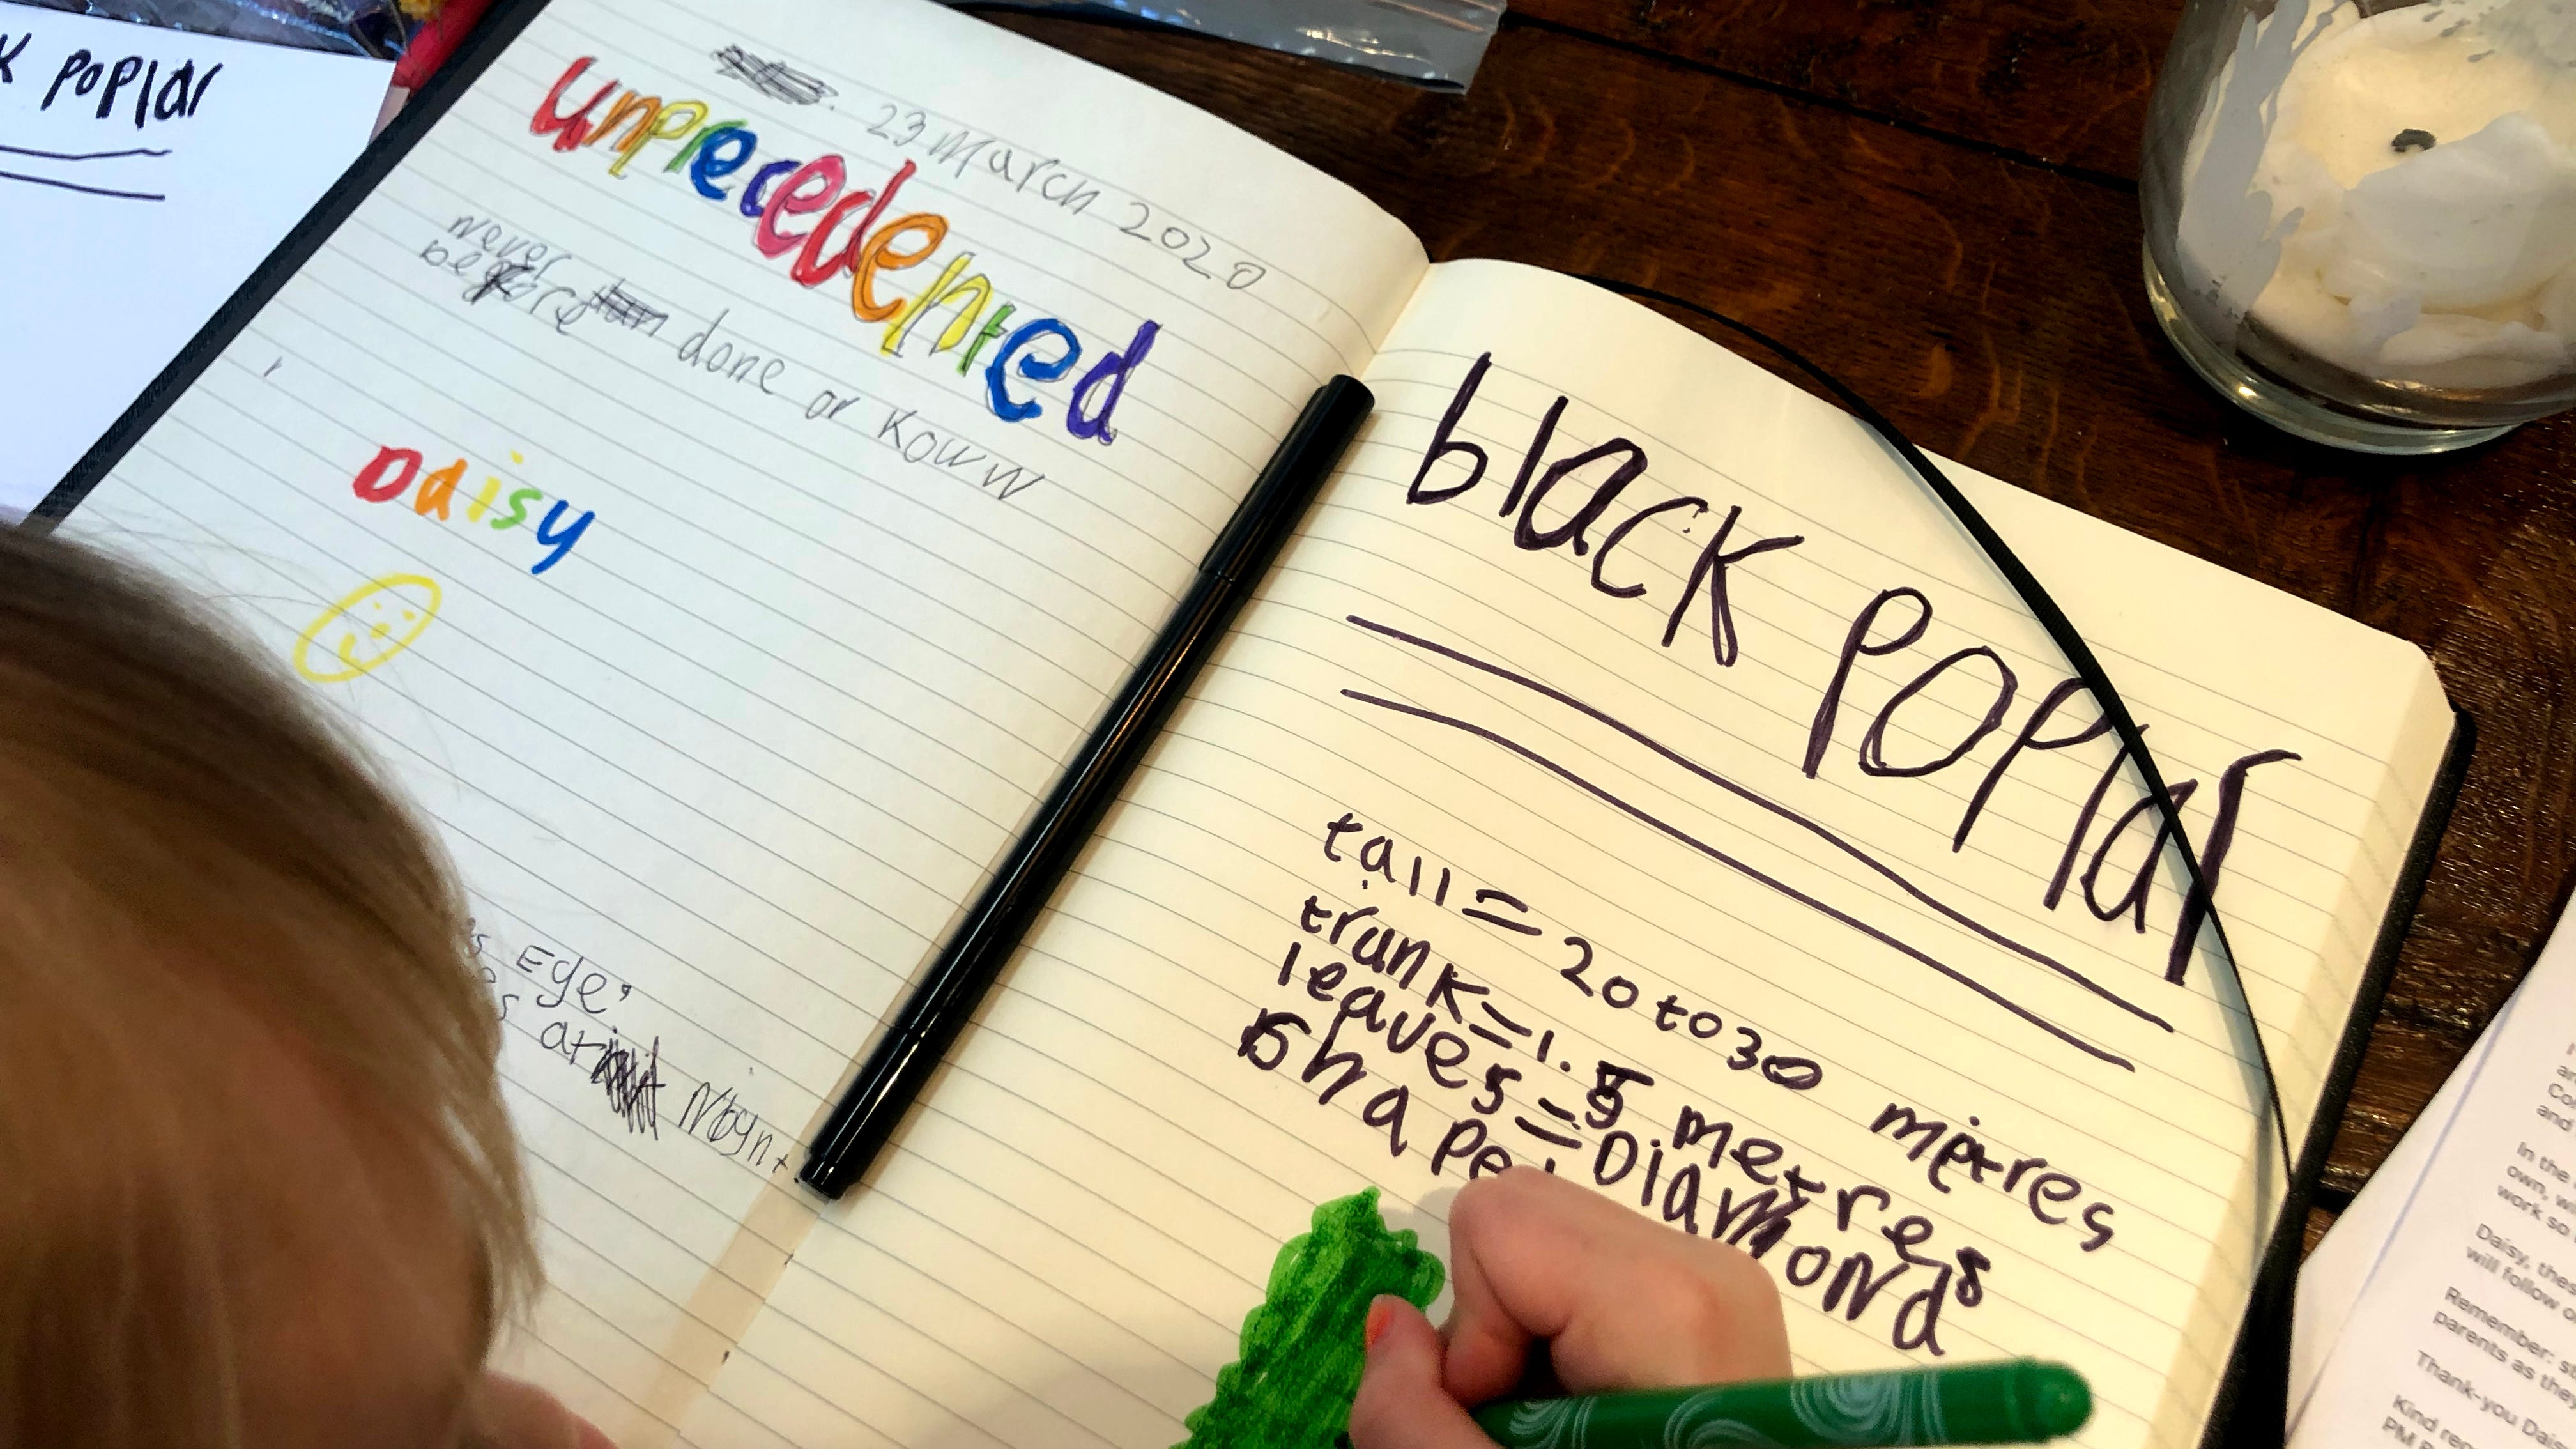 K POPlar
23 March 2020
unprecedented
Never
before done or Koww
Daisy
Ege,
black POPlar
tall = 20 to 30 metres
trunk = 1.5 metres
leaves = Diamond
Shaped
In the
own, w
work so
Daisy, thes
will follow
Remember: st
parents as they
Thank-you Dai
Kind reg
PM